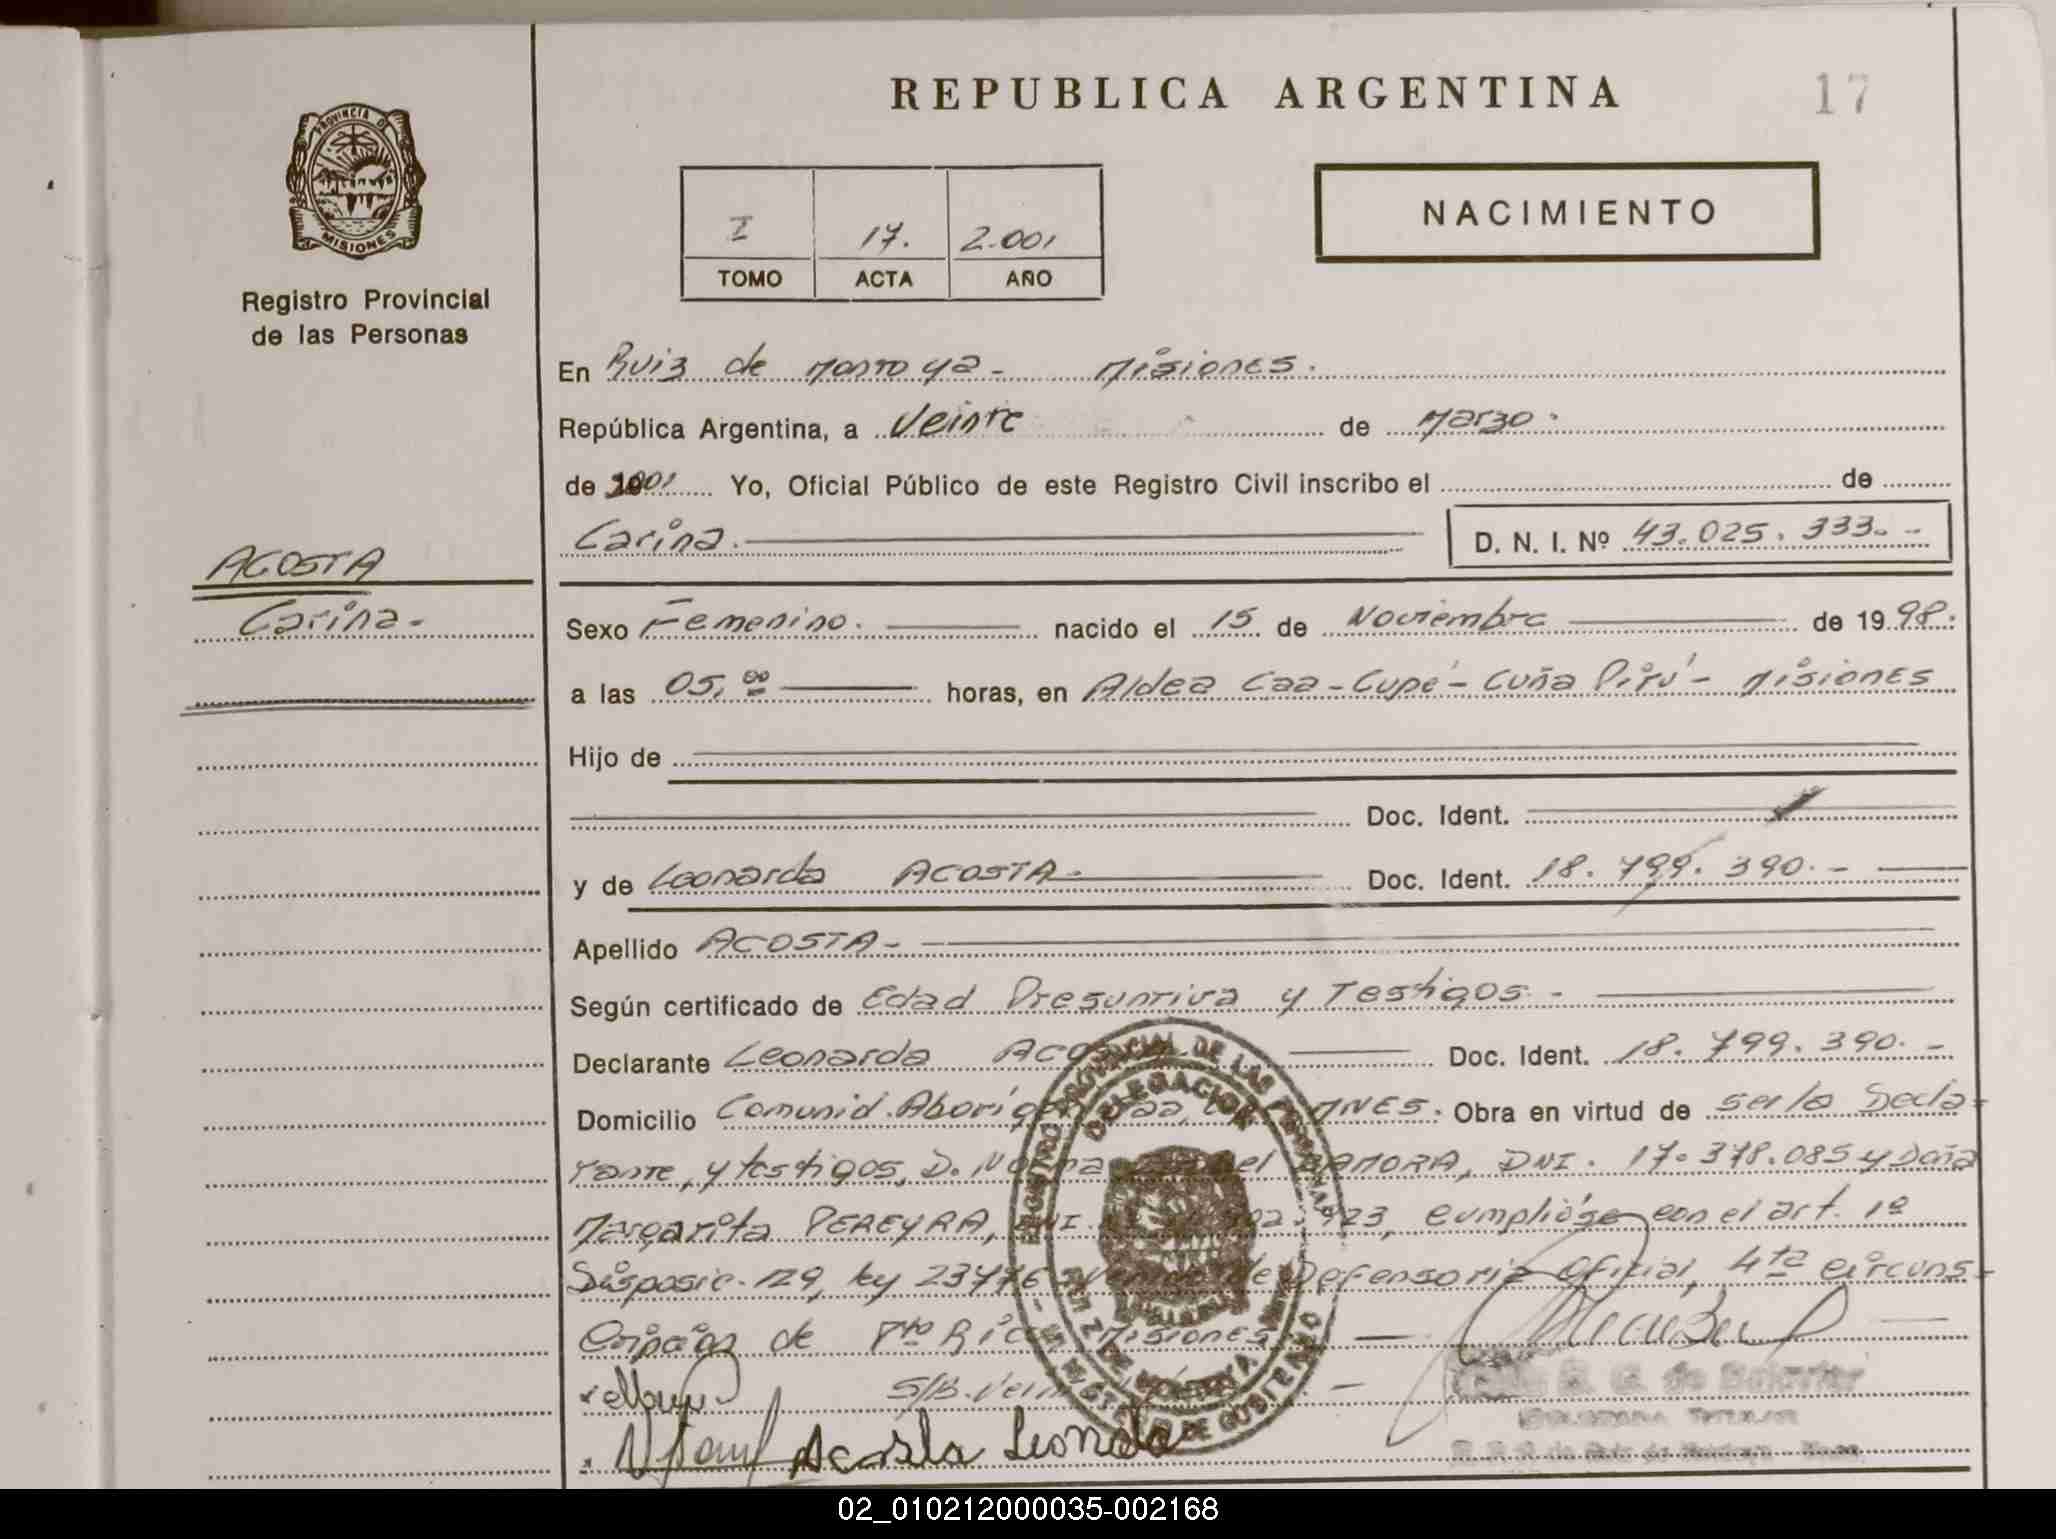 REPUBLICA ARGENTINA
17
PROVINCIA DE
MISIONES
Registro Provincial
de las Personas
I 17. 2.001
TOMO ACTA AÑO
NACIMIENTO
En Ruiz de Montoya - Misiones.
República Argentina, a Veinte de Marzo.
de 2001 Yo, Oficial Público de este Registro Civil inscribo el de
Carina. D. N. I. Nº 43.025.333.-
ACOSTA
Carina-
Sexo Femenino. nacido el 15 de Noviembre de 1998.
a las 05,00 horas, en Aldea Caa-Cupé-Cuña Pirú- Misiones
Hijo de
Doc. Ident.
y de Leonarda ACOSTA- Doc. Ident. 18.799.390.-
Apellido ACOSTA-
Según certificado de Edad Presuntiva y Testigos.-
Declarante Leonarda Doc. Ident. 18.799.390.-
Domicilio Comunid. Aborigen MNES. Obra en virtud de ser la Decla-
rante, y testigos, D. ZAMORA, DNI. 17.378.085 y Doña
Margarita PEREYRA, DNI. 923, cumplióse con el art. 1º
Disposic. 129, ley 23776 Defensoria Oficial, 4ta circuns-
cripción de Pto Rico Misiones
S/B. Vein
Acosta Leonarda
REGISTRO PROVINCIAL DE LAS PERSONAS
DELEGACION
RUIZ DE MONTOYA
02_010212000035-002168